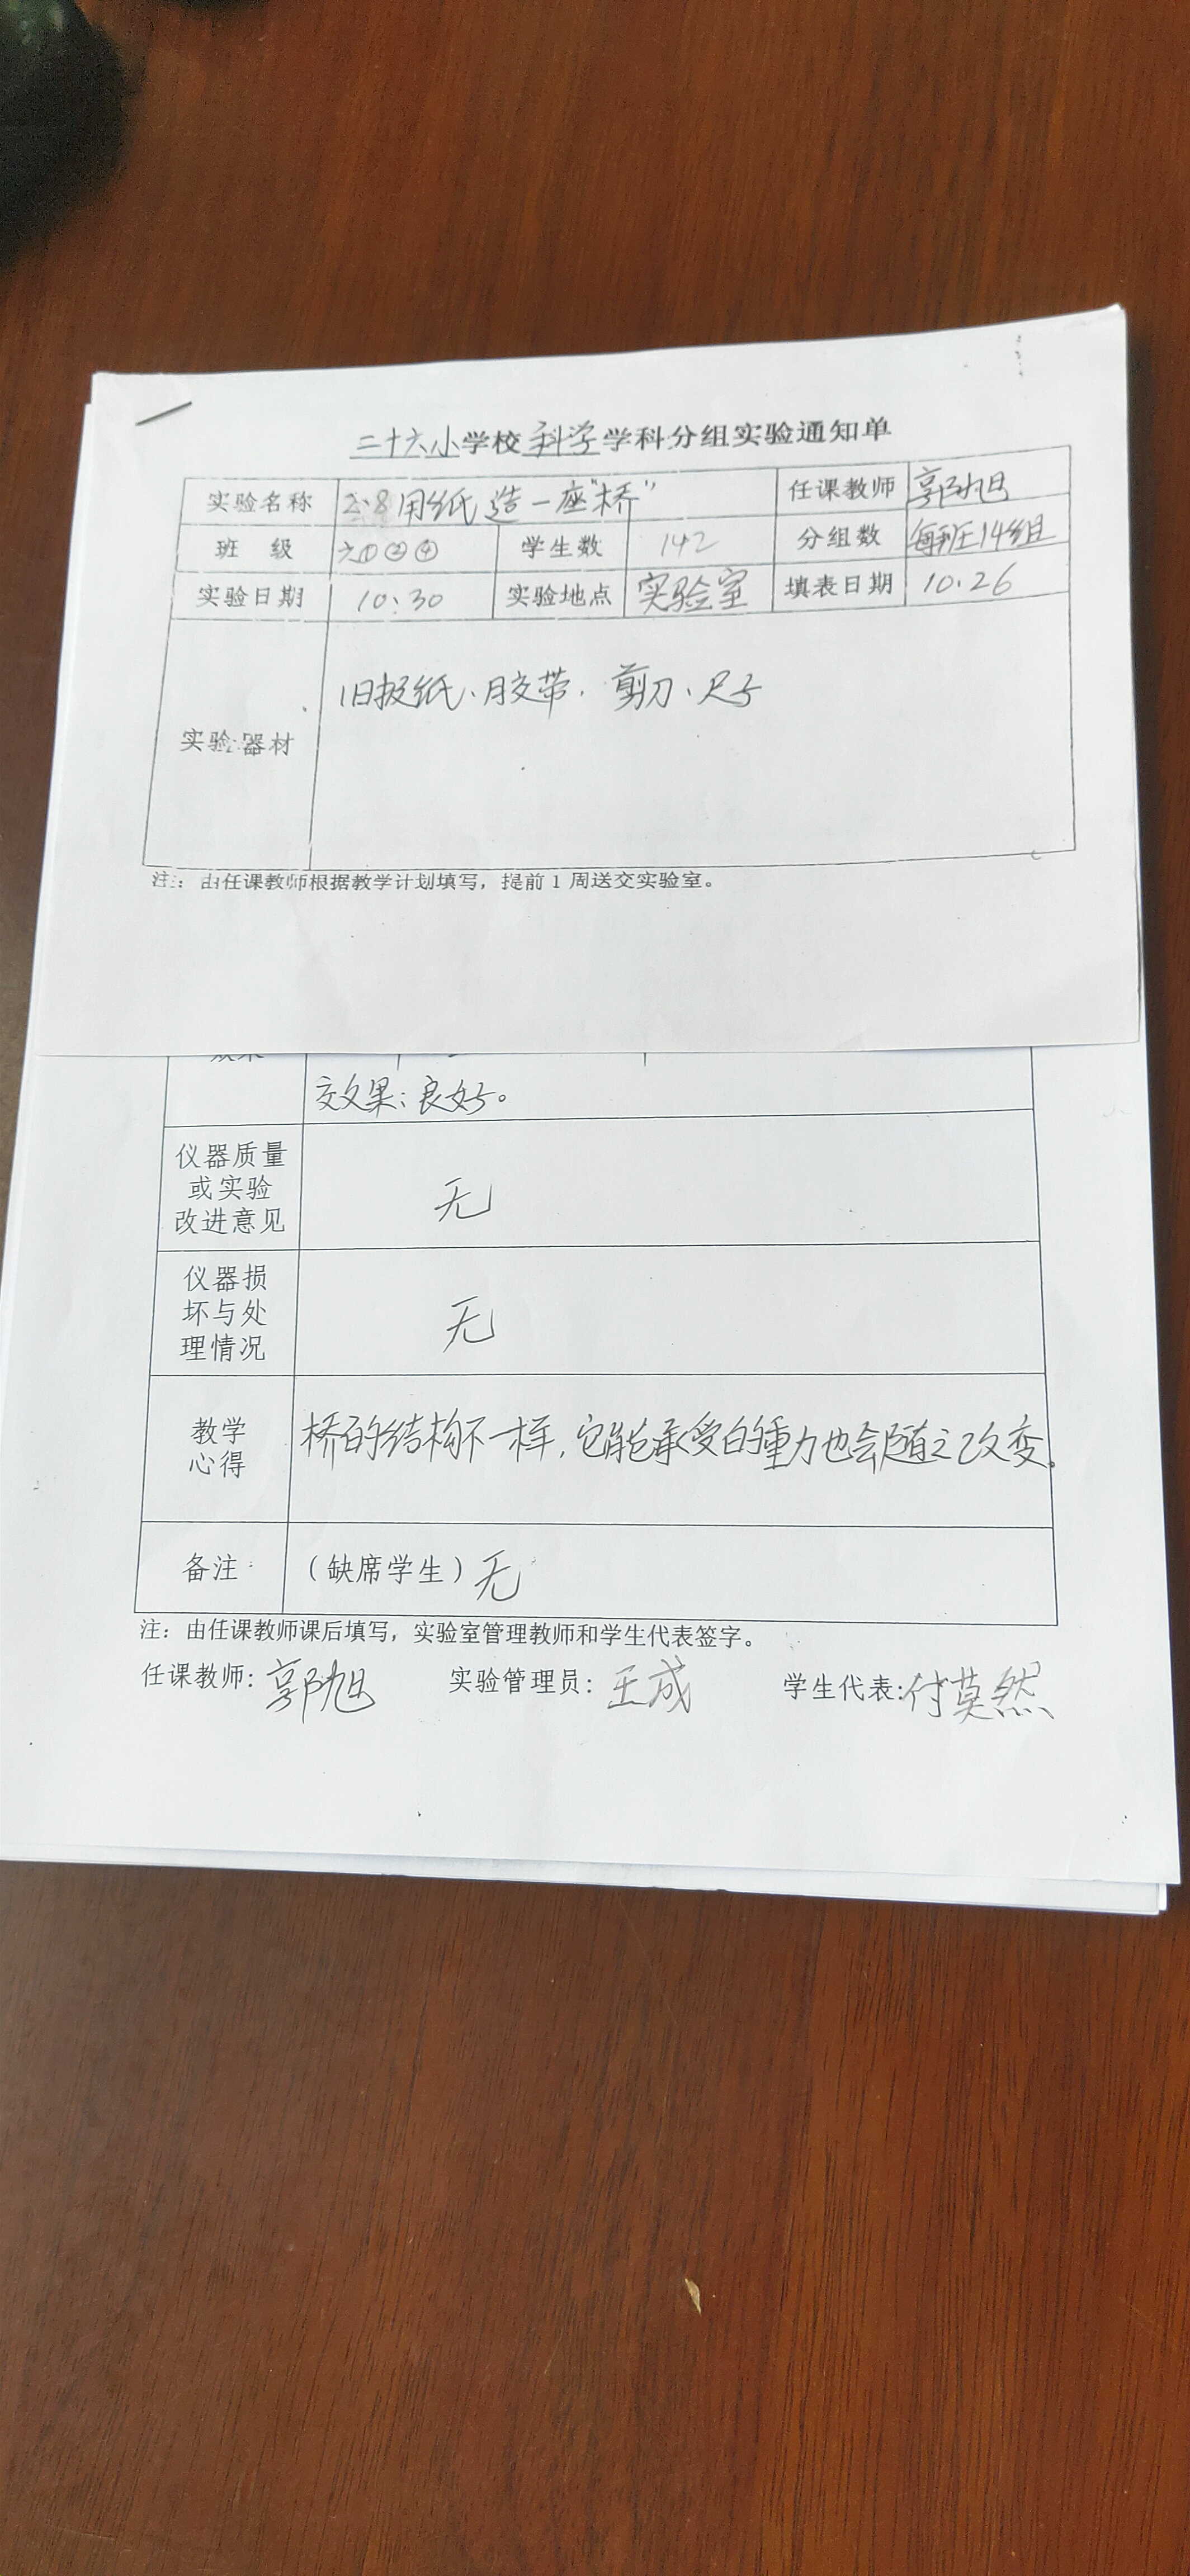 二十六小学校科学学科分组实验通知单
实验名称 2.8用纸造一座"桥" 任课教师 郭旭
班 级 六①②④ 学生数 142 分组数 每班14组
实验日期 10.30 实验地点 实验室 填表日期 10.26
实验器材 旧报纸、胶带、剪刀、尺子
注：由任课教师根据教学计划填写，提前1周送交实验室。
效果：良好。
仪器质量
或实验
改进意见
无
仪器损
坏与处
理情况
无
教学
心得
桥的结构不一样，它能承受的重力也会随之改变。
备注 （缺席学生）无
注：由任课教师课后填写，实验室管理教师和学生代表签字。
任课教师：郭旭 实验管理员：王成 学生代表：付莫然